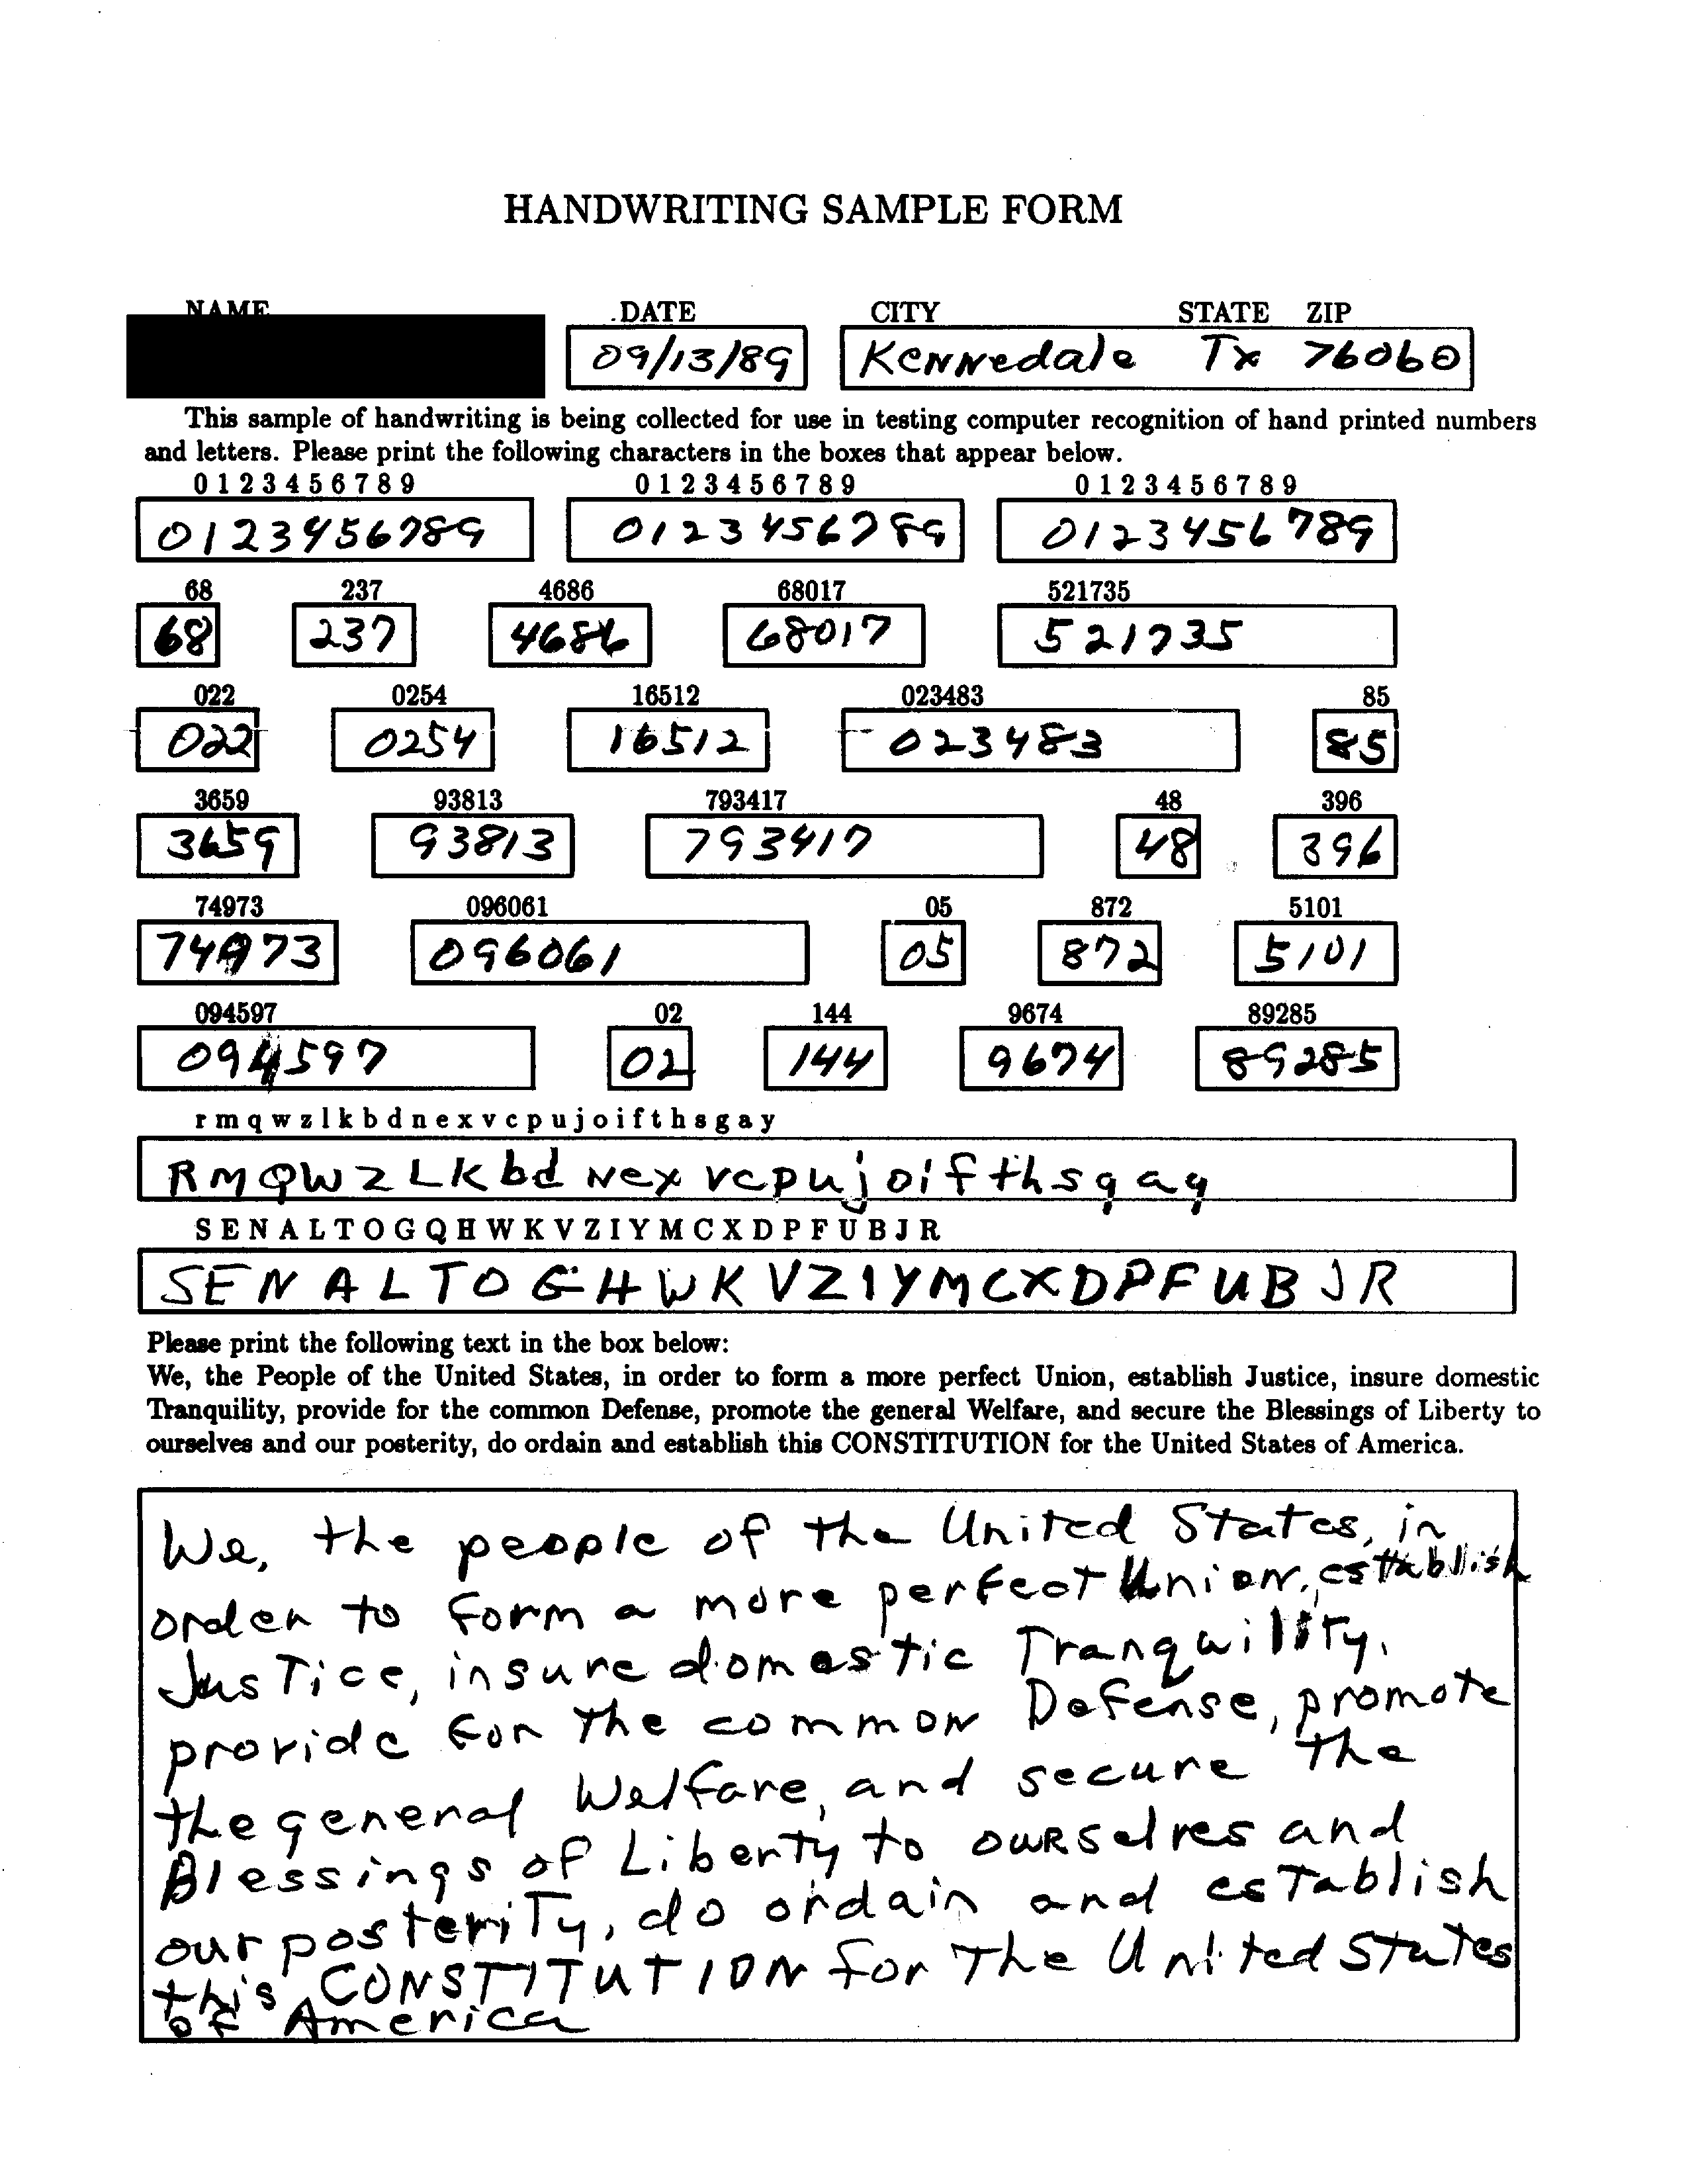 HANDWRITING SAMPLE FORM
NAME DATE CITY STATE ZIP
09/13/89 Kennedale Tx 76060
This sample of handwriting is being collected for use in testing computer recognition of hand printed numbers
and letters. Please print the following characters in the boxes that appear below.
0 1 2 3 4 5 6 7 8 9 0 1 2 3 4 5 6 7 8 9 0 1 2 3 4 5 6 7 8 9
0123456789 0123456789 0123456789
68 237 4686 68017 521735
68 237 4686 68017 521735
022 0254 16512 023483 85
022 0254 16512 023483 85
3659 93813 793417 48 396
3659 93813 793417 48 396
74973 096061 05 872 5101
74973 096061 05 872 5101
094597 02 144 9674 89285
094597 02 144 9674 89285
r m q w z l k b d n e x v c p u j o i f t h s g a y
RMQWZLKbdNexvcpujoifthsgay
S E N A L T O G Q H W K V Z I Y M C X D P F U B J R
SENALTOGHWKVZIYMCXDPFUBJR
Please print the following text in the box below:
We, the People of the United States, in order to form a more perfect Union, establish Justice, insure domestic
Tranquility, provide for the common Defense, promote the general Welfare, and secure the Blessings of Liberty to
ourselves and our posterity, do ordain and establish this CONSTITUTION for the United States of America.
We, the people of the United States, in
order to form a more perfect Union, establish
Justice, insure domestic Tranquility,
provide for the common Defense, promote
the general Welfare, and secure the
Blessings of Liberty to ourselves and
our posterity, do ordain and establish
this CONSTITUTION for The United States
of America